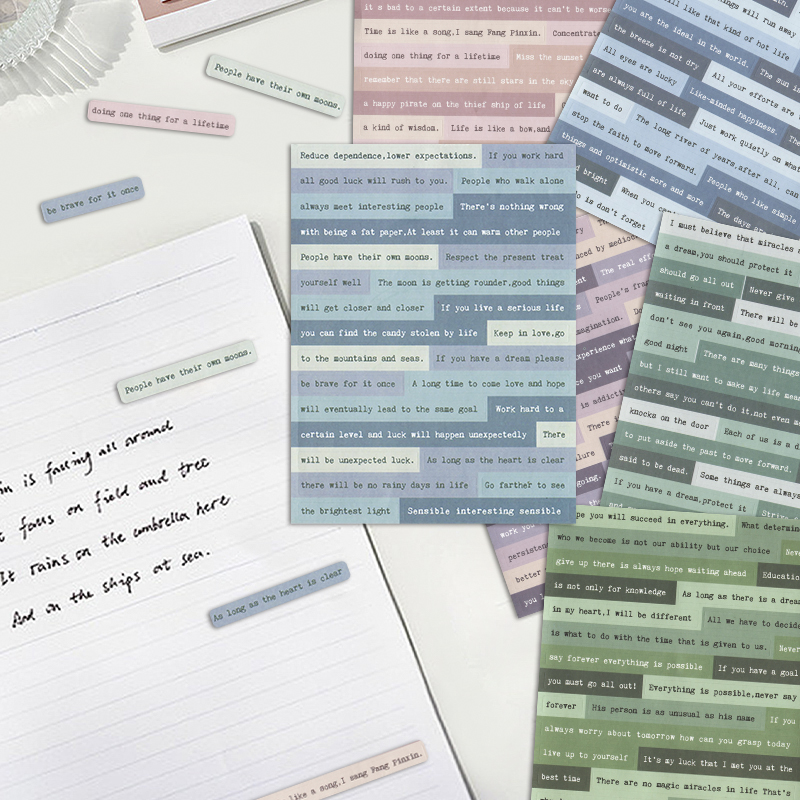 it a bad to a certain extent because it can't be worse
Time is like a song.I sang Fang Pinxin. Concentrate
doing one thing for a lifetime Miss the sunset
remember that there are still stars in the sky
a happy pirate on the thief ship of life
a kind of wisdom. Life is like a bow,and
things will run away
like that kind of hot life
you are the ideal in the world. The sun is
the breeze is not dry All your efforts are
All eyes are lucky Like-minded happiness. The
are always full of life Just work quietly on what
want to do The long river of years,after all, can
stop the faith to move forward. People who like simple
things and optimistic more and more The days are
bright When you
is don't forget
People have their own moons.
doing one thing for a lifetime
be brave for it once
Reduce dependence,lower expectations. If you work hard
all good luck will rush to you. People who walk alone
always meet interesting people There's nothing wrong
with being a fat paper,At least it can warm other people
People have their own moons. Respect the present treat
yourself well The moon is getting rounder,good things
will get closer and closer If you live a serious life
you can find the candy stolen by life Keep in love,go
to the mountains and seas. If you have a dream please
be brave for it once A long time to come love and hope
will eventually lead to the same goal Work hard to a
certain level and luck will happen unexpectedly There
will be unexpected luck. As long as the heart is clear
there will be no rainy days in life Go farther to see
the brightest light Sensible interesting sensible
by
The real
People's
imagination.
experience what
you want
is addictive
There
going.
work you
persistence
better
you
I must believe that miracles
a dream,you should protect it
should go all out Never give
waiting in front There will be
don't see you again,good morning
good night There are many things
but I still want to make my life
others say you can't do it.not even
knocks on the door Each of us is a
to put aside the past to move forward.
said to be dead. Some things are always
If you have a dream,protect it
People have their own moons.
is falling all around
falls on field and tree
It rains on the umbrella here
And on the ships at sea.
As long as the heart is clear
like a song.I sang Fang Pinxin.
you will succeed in everything. What
who we become is not our ability but our choice Never
give up there is always hope waiting ahead Education
is not only for knowledge As long as there is a dream
in my heart,I will be different All we have to decide
is what to do with the time that is given to us. Never
say forever everything is possible If you have a goal
you must go all out! Everything is possible,never say
forever His person is as unusual as his name If you
always worry about tomorrow how can you grasp today
live up to yourself It's my luck that I met you at the
best time There are no magic miracles in life That's